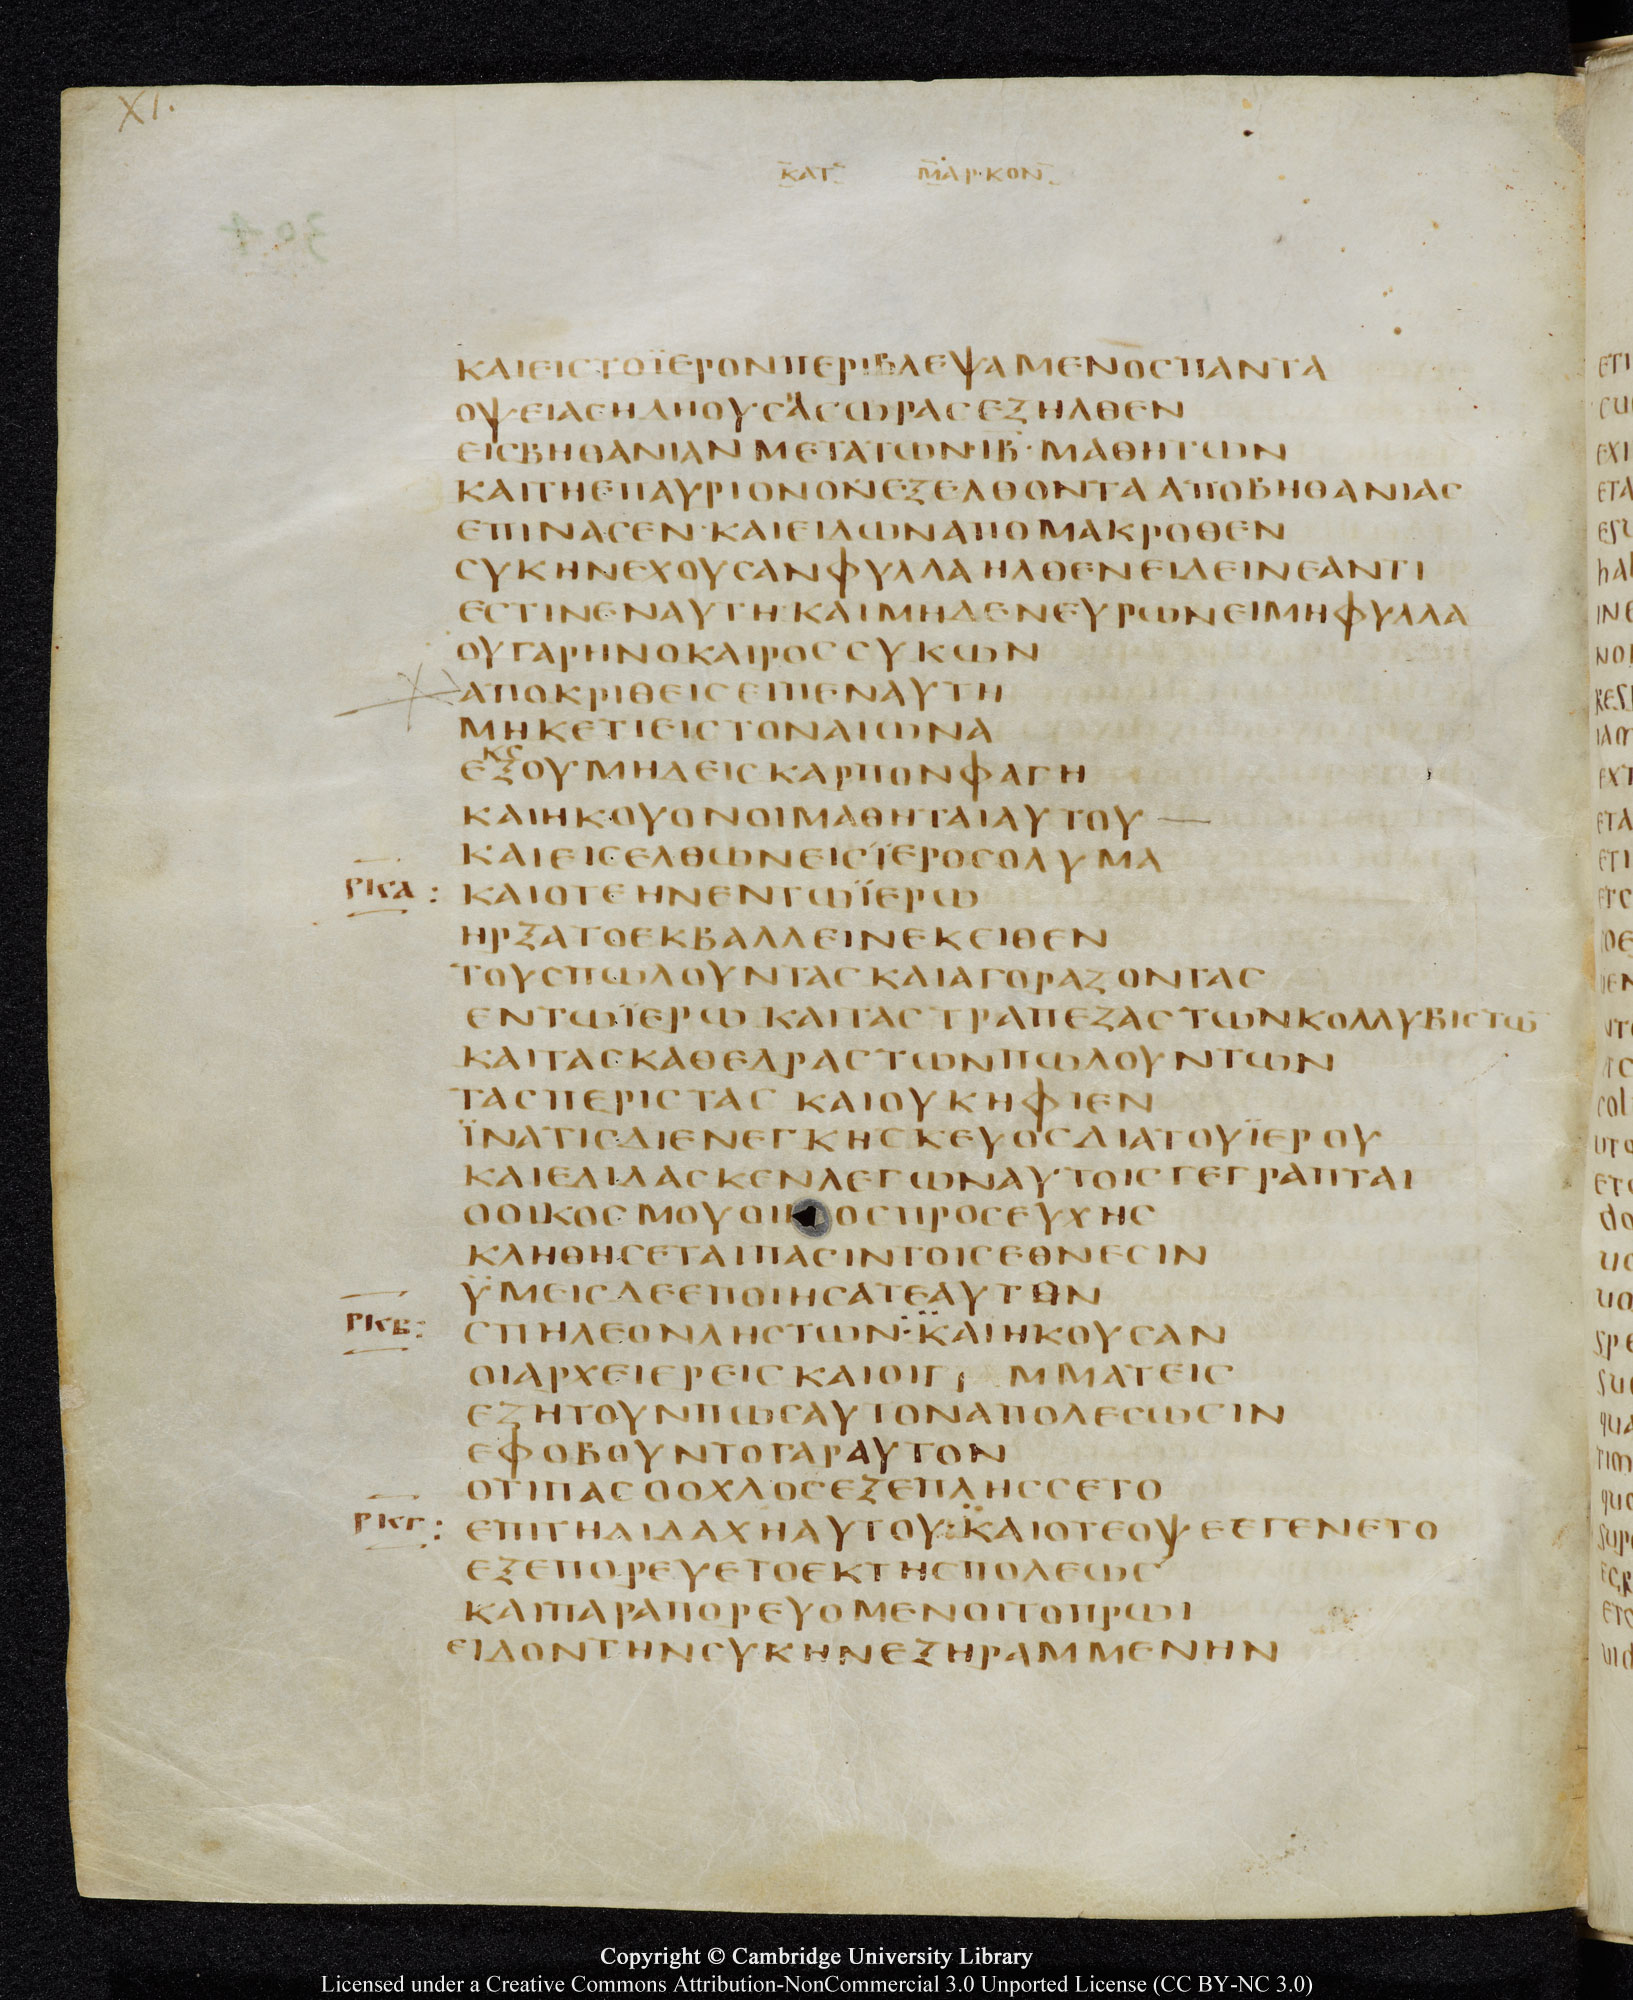 XI.
ΚΑΤ ΜΑΡΚΟΝ
304
ΚΑΙΕΙϹΤΟΪΕΡΟΝΠΕΡΙΒΛΕΨΑΜΕΝΟϹΠΑΝΤΑ
ΟΨΕΙΑϹΗΔΗΟΥϹΑϹΩΡΑϹΕΞΗΛΘΕΝ
ΕΙϹΒΗΘΑΝΙΑΝΜΕΤΑΤΩΝ·ΙΒ·ΜΑΘΗΤΩΝ
ΚΑΙΤΗΕΠΑΥΡΙΟΝΟΝΕΞΕΛΘΟΝΤΑΑΠΟΒΗΘΑΝΙΑϹ
ΕΠΙΝΑϹΕΝ·ΚΑΙΕΙΔΩΝΑΠΟΜΑΚΡΟΘΕΝ
ϹΥΚΗΝΕΧΟΥϹΑΝΦΥΛΛΑΗΛΘΕΝΕΙΔΕΙΝΕΑΝΤΙ
ΕϹΤΙΝΕΝΑΥΤΗ·ΚΑΙΜΗΔΕΝΕΥΡΩΝΕΙΜΗΦΥΛΛΑ
ΟΥΓΑΡΗΝΟΚΑΙΡΟϹϹΥΚΩΝ
ΑΠΟΚΡΙΘΕΙϹΕΙΠΕΝΑΥΤΗ
ΜΗΚΕΤΙΕΙϹΤΟΝΑΙΩΝΑ
ΚϹ
ΕΞΟΥΜΗΔΕΙϹΚΑΡΠΟΝΦΑΓΗ
ΚΑΙΗΚΟΥΟΝΟΙΜΑΘΗΤΑΙΑΥΤΟΥ
ΚΑΙΕΙϹΕΛΘΩΝΕΙϹΪΕΡΟϹΟΛΥΜΑ
ΡΚΑ : ΚΑΙΟΤΕΗΝΕΝΤΩΪΕΡΩ
ΗΡΞΑΤΟΕΚΒΑΛΛΕΙΝΕΚΕΙΘΕΝ
ΤΟΥϹΠΩΛΟΥΝΤΑϹΚΑΙΑΓΟΡΑΖΟΝΤΑϹ
ΕΝΤΩΪΕΡΩΚΑΙΤΑϹΤΡΑΠΕΖΑϹΤΩΝΚΟΛΛΥΒΙϹΤΩ̅
ΚΑΙΤΑϹΚΑΘΕΔΡΑϹΤΩΝΠΩΛΟΥΝΤΩΝ
ΤΑϹΠΕΡΙϹΤΑϹ ΚΑΙΟΥΚΗΦΙΕΝ
ΪΝΑΤΙϹΔΙΕΝΕΓΚΗϹΚΕΥΟϹΔΙΑΤΟΥΪΕΡΟΥ
ΚΑΙΕΔΙΔΑϹΚΕΝΛΕΓΩΝΑΥΤΟΙϹΓΕΓΡΑΠΤΑΙ
ΟΟΙΚΟϹΜΟΥ ΟϹΠΡΟϹΕΥΧΗϹ
ΚΛΗΘΗϹΕΤΑΙΠΑϹΙΝΤΟΙϹΕΘΝΕϹΙΝ
ΫΜΕΙϹΔΕΕΠΟΙΗϹΑΤΕΑΥΤΟΝ
ΡΚΒ : ϹΠΗΛΕΟΝΛΗϹΤΩΝ:ΚΑΙΗΚΟΥϹΑΝ
ΟΙΑΡΧΕΙΕΡΕΙϹΚΑΙΟΙΓΡ ΜΜΑΤΕΙϹ
ΕΖΗΤΟΥΝΠΩϹΑΥΤΟΝΑΠΟΛΕϹΩϹΙΝ
ΕΦΟΒΟΥΝΤΟΓΑΡΑΥΤΟΝ
ΟΤΙΠΑϹΟΟΧΛΟϹΕΞΕΠΛΗϹϹΕΤΟ
ΡΚΓ : ΕΠΙΤΗΔΙΔΑΧΗΑΥΤΟΥ:ΚΑΙΟΤΕΟΨΕΕΓΕΝΕΤΟ
ΕΞΕΠΟΡΕΥΕΤΟΕΚΤΗϹΠΟΛΕΩϹ
ΚΑΙΠΑΡΑΠΟΡΕΥΟΜΕΝΟΙΤΟΠΡΩΙ
ΕΙΔΟΝΤΗΝϹΥΚΗΝΕΞΗΡΑΜΜΕΝΗΝ
Copyright © Cambridge University Library
Licensed under a Creative Commons Attribution-NonCommercial 3.0 Unported License (CC BY-NC 3.0)